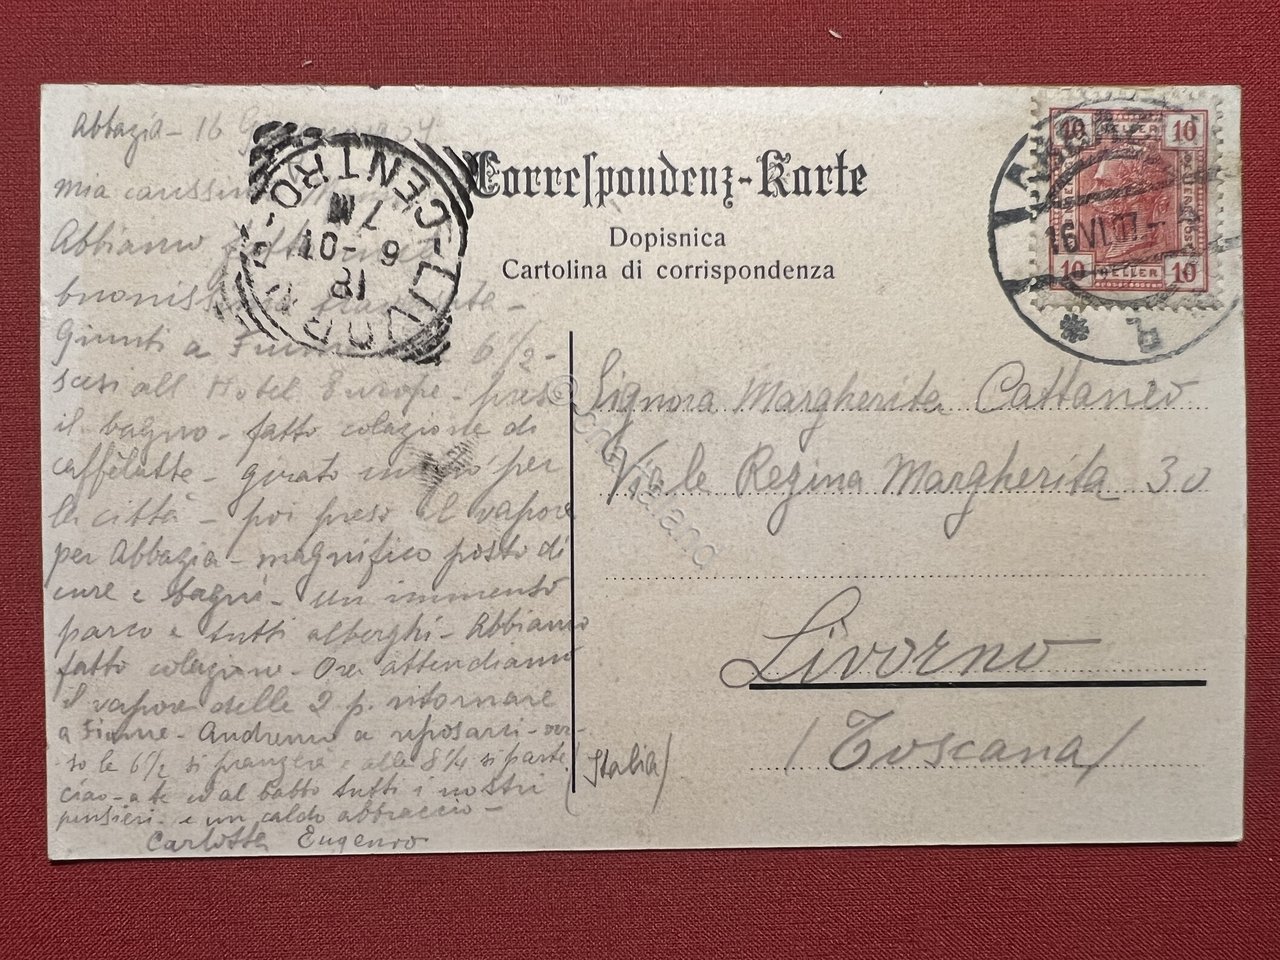 Abbazia - 16
mia carissima
Abbiamo fatto
buonissima
Giunti a Fiume 6 1/2 -
scesi all Hotel Europe - preso
il bagno - fatto colazione di
caffèlatte - girato un po' per
la città - poi preso il vapore
per Abbazia - magnifico posto di
cure e bagni - un immenso
parco e tutti alberghi - Abbiamo
fatto colazione - Ora attendiamo
il vapore delle 2 p. ritornare
a Fiume - Andremo a riposarci - ver-
so le 6 1/2 si pranzerà e alle 8 1/4 si parte
ciao - a te ed al babbo tutti i nostri
pensieri - e un caldo abbraccio -
Carlotta Eugenio
LIVORNO - CENTRO
18
6 - 07
7 M
Correspondenz-Karte
Dopisnica
Cartolina di corrispondenza
10 HELLER 10
10 HELLER 10
16 VI 07
* b
Signora Margherita Cattaneo
Viale Regina Margherita 30
Livorno
(Toscana)
(Italia)